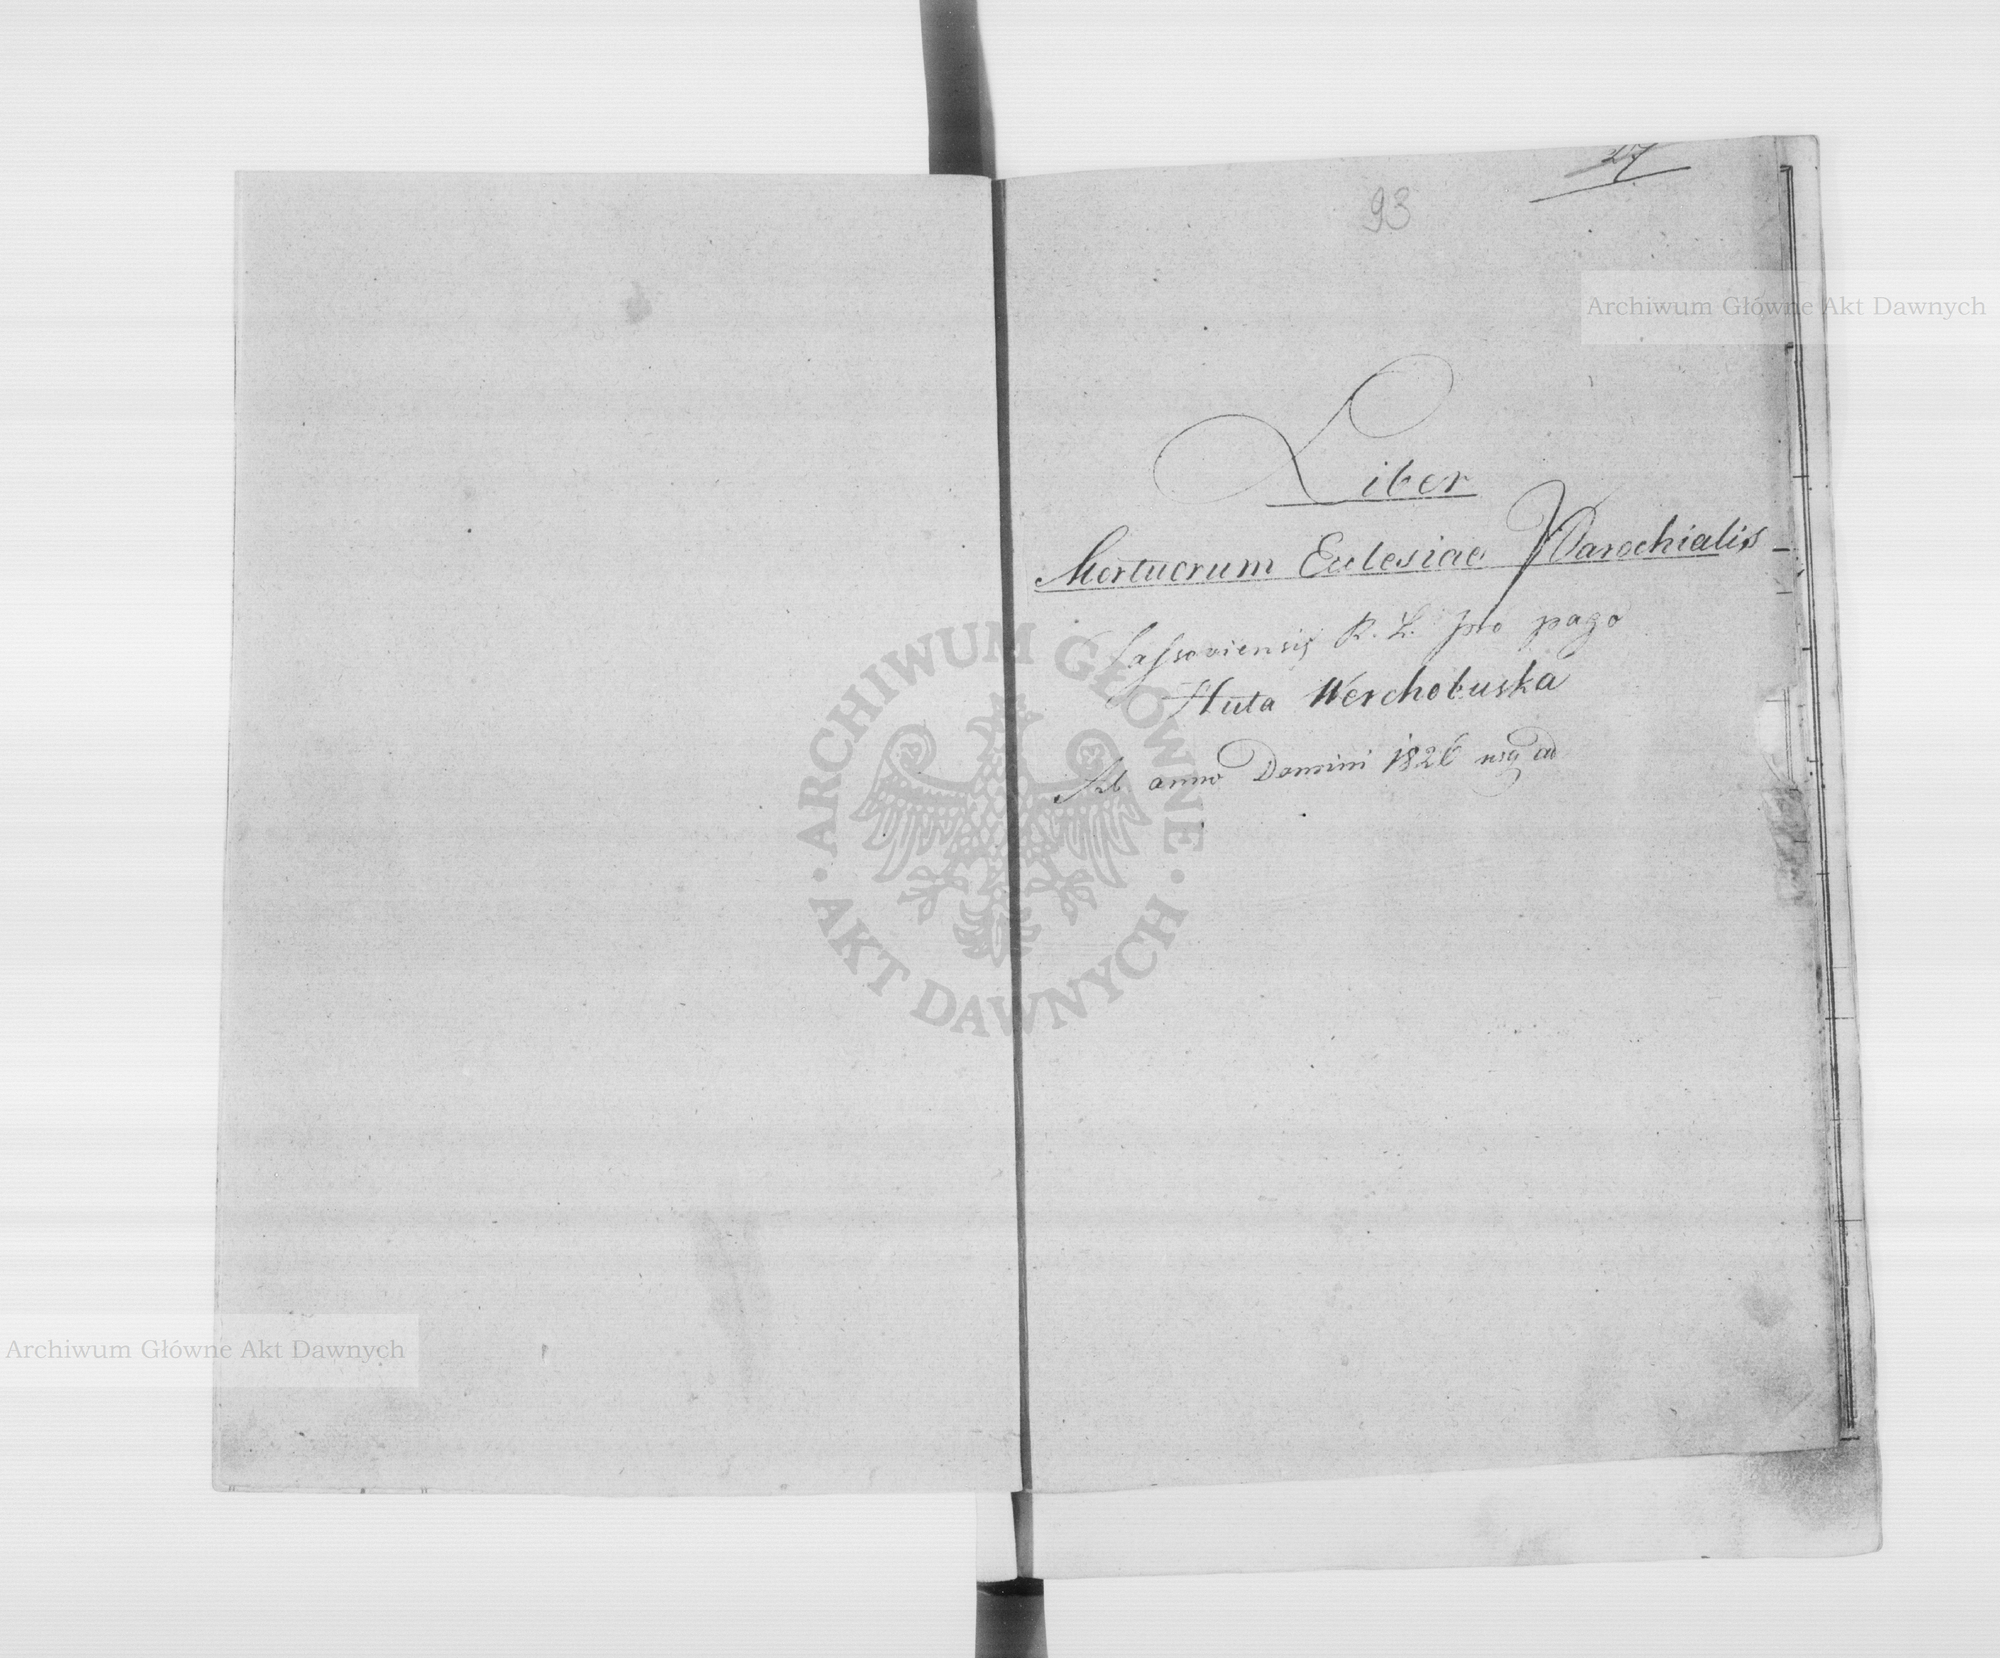 27
93
Archiwum Główne Akt Dawnych
Liber
Mortuorum Eclesiae Parochialis
Sassoviensis R. L. pro pago
Huta Werchobuska
Ab anno Domini 1826 usq ad
ARCHIWUM GŁÓWNE
AKT DAWNYCH
Archiwum Główne Akt Dawnych